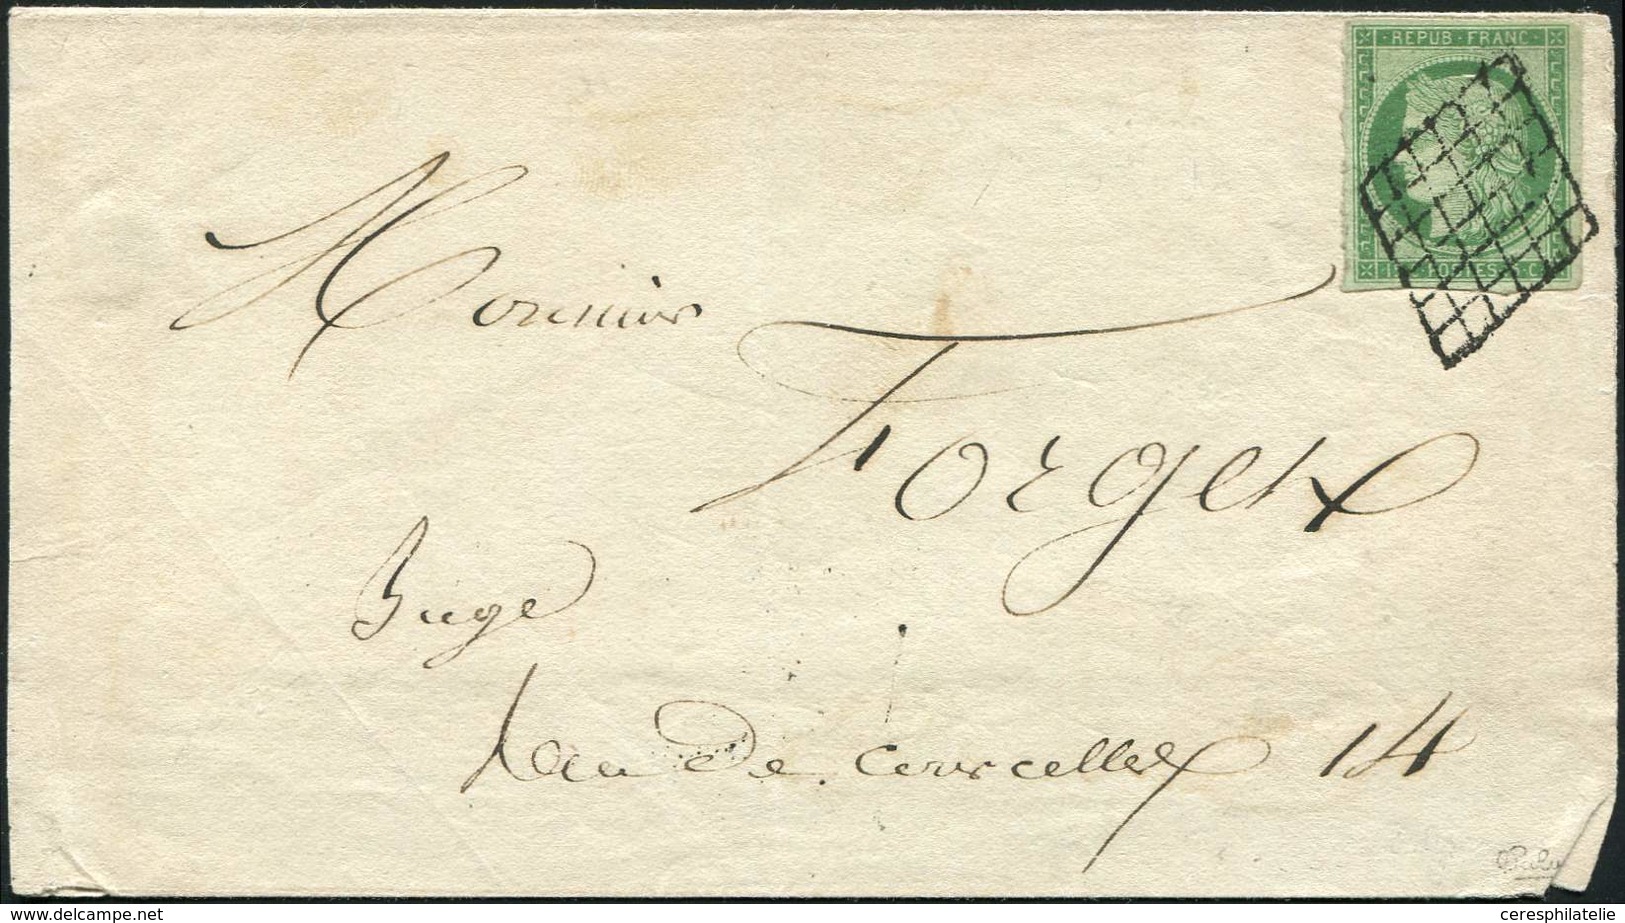 REPUB · FRANC ·
15 · POSTES · 15 C
Monsieur
Forget
Juge
Rue de Courcelles 14
www.delcampe.net
ceresphilatelie